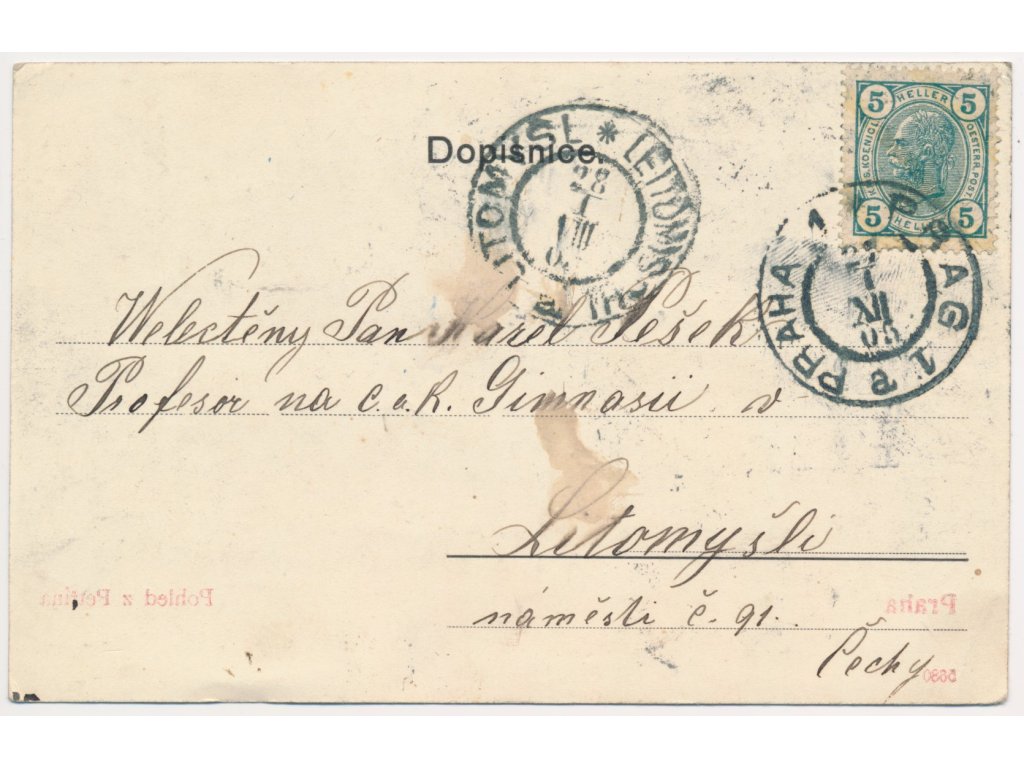 Dopisnice.
5 HELLER 5
K.K. OESTERR. POST.
5 HELLER 5
LITOMYŠL * LEITOMISCHL
28
I
VIII
PRAHA 1 PRAG 1
I
XII
Welectěny Pan Karel Pešek
Profesor na c.a.k. Gimnasii v
Litomyšli
náměsti č. 91.
Čechy
Pohled z Petřína
Praha
5680